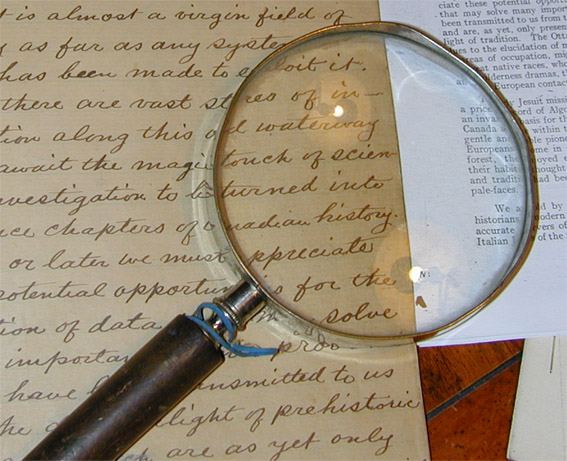 t is almost a virgin field of
g as far as any syste
has been made to exploit it.
there are vast stores of in-
tion along this old waterway
await the magic touch of scien-
nvestigation to be turned into
nce chapters of Canadian history.
or later we must appreciate
potential opportun s for the
tion of data solve
importan pro-
have transmitted to us
light of prehistoric
ch are as yet only
ciate these potential opport
that may solve many impor
been transmitted to us from t
and are, as yet, only present
light of tradition. The Otta
ues to the elucidation of m
areas of occupation, mig
great native races, who
wilderness dramas, th
European contac
Jesuit miss
a price ord of Algo
an invas asis for th
Canada within t
gentle ple pione
Europeans me in
forest, the oyed e
their habi thought
and traditi had been
pale-faces.
We a d by
historian modern
accurate vers of
Italian s of the
N: